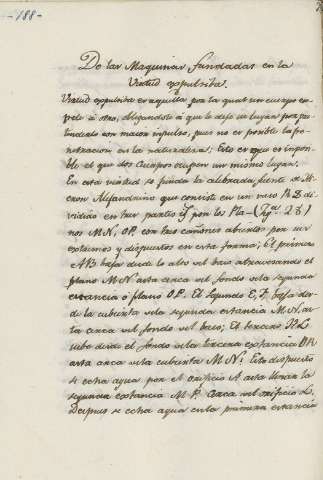 -188-
De las Maquinas fundadas en la
Virtud expulsiva.
Virtud expulsiva es aquella por la qual un cuerpo ex-
pele á otro, alejandolo á que le deje su lugar por
con maior impulso, pues no es posible la pe-
netracion en la naturaleza. Esto es que es inposi-
ble el que dos Cuerpos ocupen un mismo lugar.
En esta virtud se funda la celebrada fuente de He-
ron Alejandrino que consiste en un vaso di-
vidido en tres partes por los Pla- Fig.ª 281
nos MN, OP, con tres cañones abiertos por sus
extremos y dispuestos en esta forma; El primero
AB baja desde lo alto del baso atravesando el
plano MN asta cerca del fondo de la segunda
estancia ó plano OP. El segundo E, F, baja des-
de la cubierta de la segunda estancia MN as-
ta cerca del fondo del baso; El tercero
sube desde el fondo de la tercera estancia
asta cerca de la cubierta MN: Esto dispuesto
se echa agua por el orificio A asta llenar la
segunda estancia M P. cerca del orificio L.
Despues se echa agua en la primera estancia